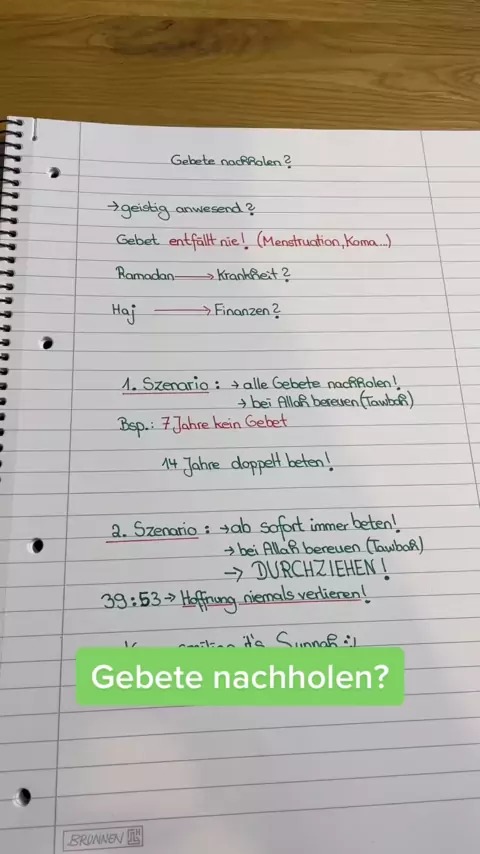 Gebete nachholen?
→ geistig anwesend?
Gebet entfällt nie! (Menstruation, Koma...)
Ramadan → Krankheit?
Haj → Finanzen?
1. Szenario: → alle Gebete nachholen!
→ bei Allah bereuen (Tawbah)
Bsp.: 7 Jahre kein Gebet
14 Jahre doppelt beten!
2. Szenario: → ab sofort immer beten!
→ bei Allah bereuen (Tawbah)
→ DURCHZIEHEN!
39:53 → Hoffnung niemals verlieren!
it's Sunnah :)
Gebete nachholen?
BRUNNEN